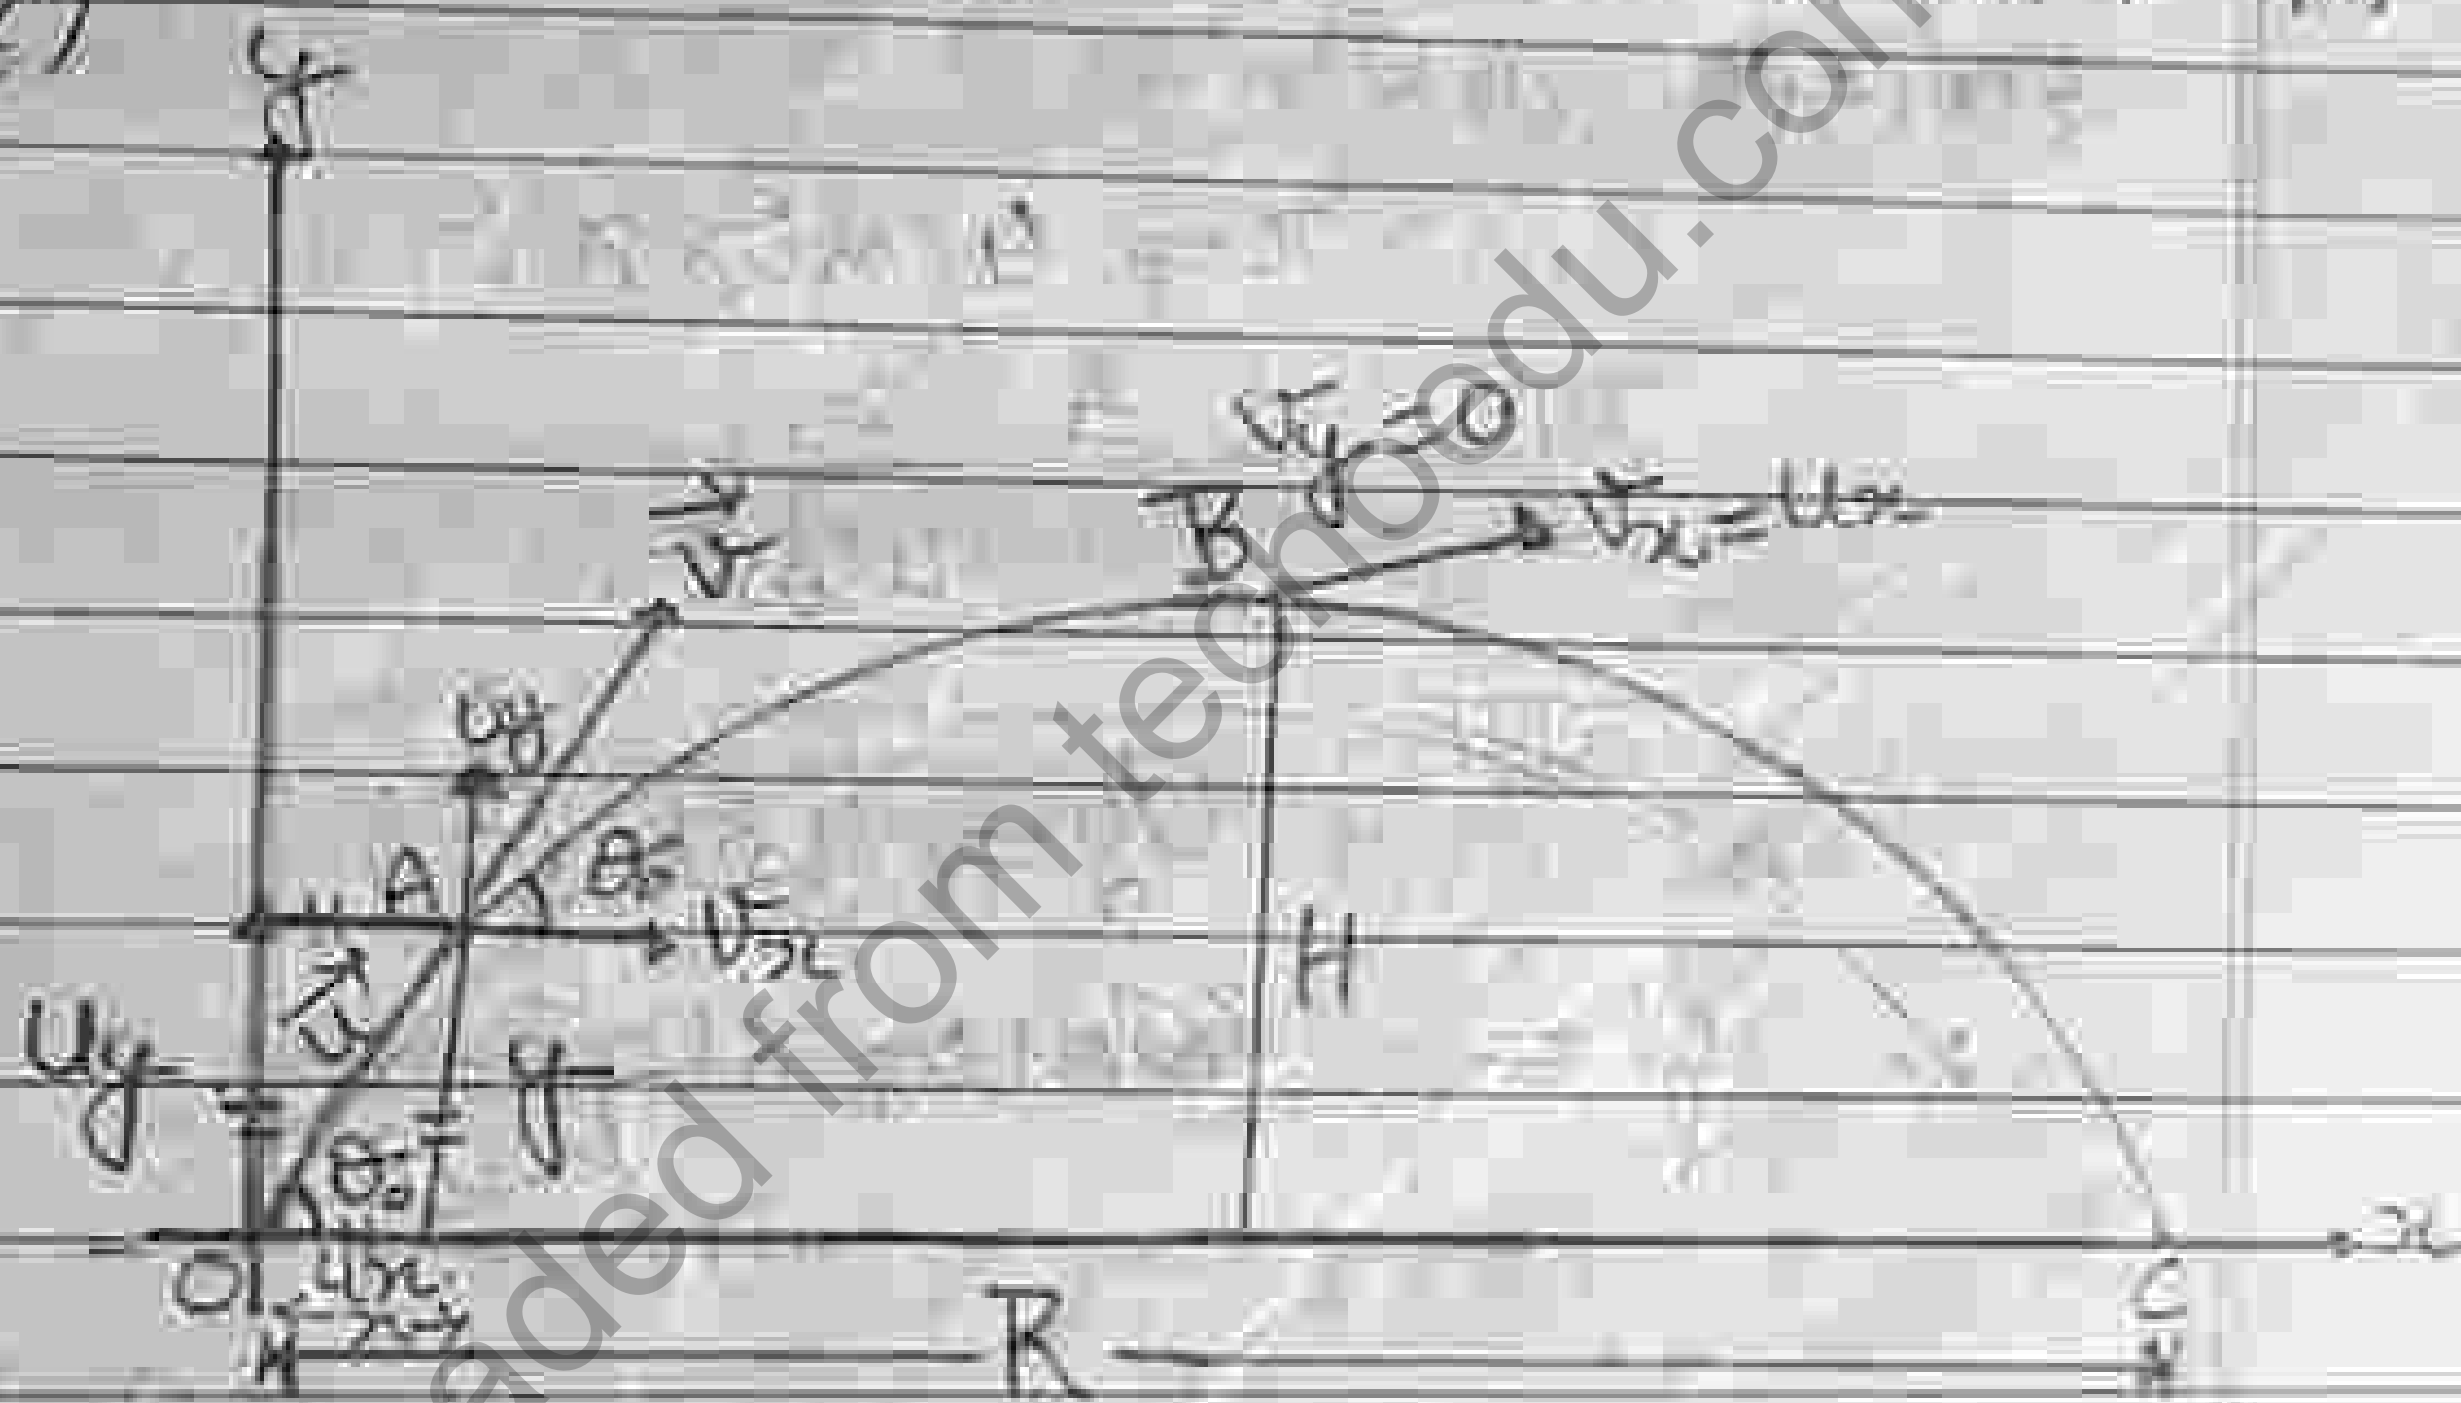 y
v̄y = 0
v⃗
B
v̄x = ux
vy
A
θ
v̄x
u⃗
H
uy
y
θ₀
x
O
ux
x
C
R
aded from techoedu.com